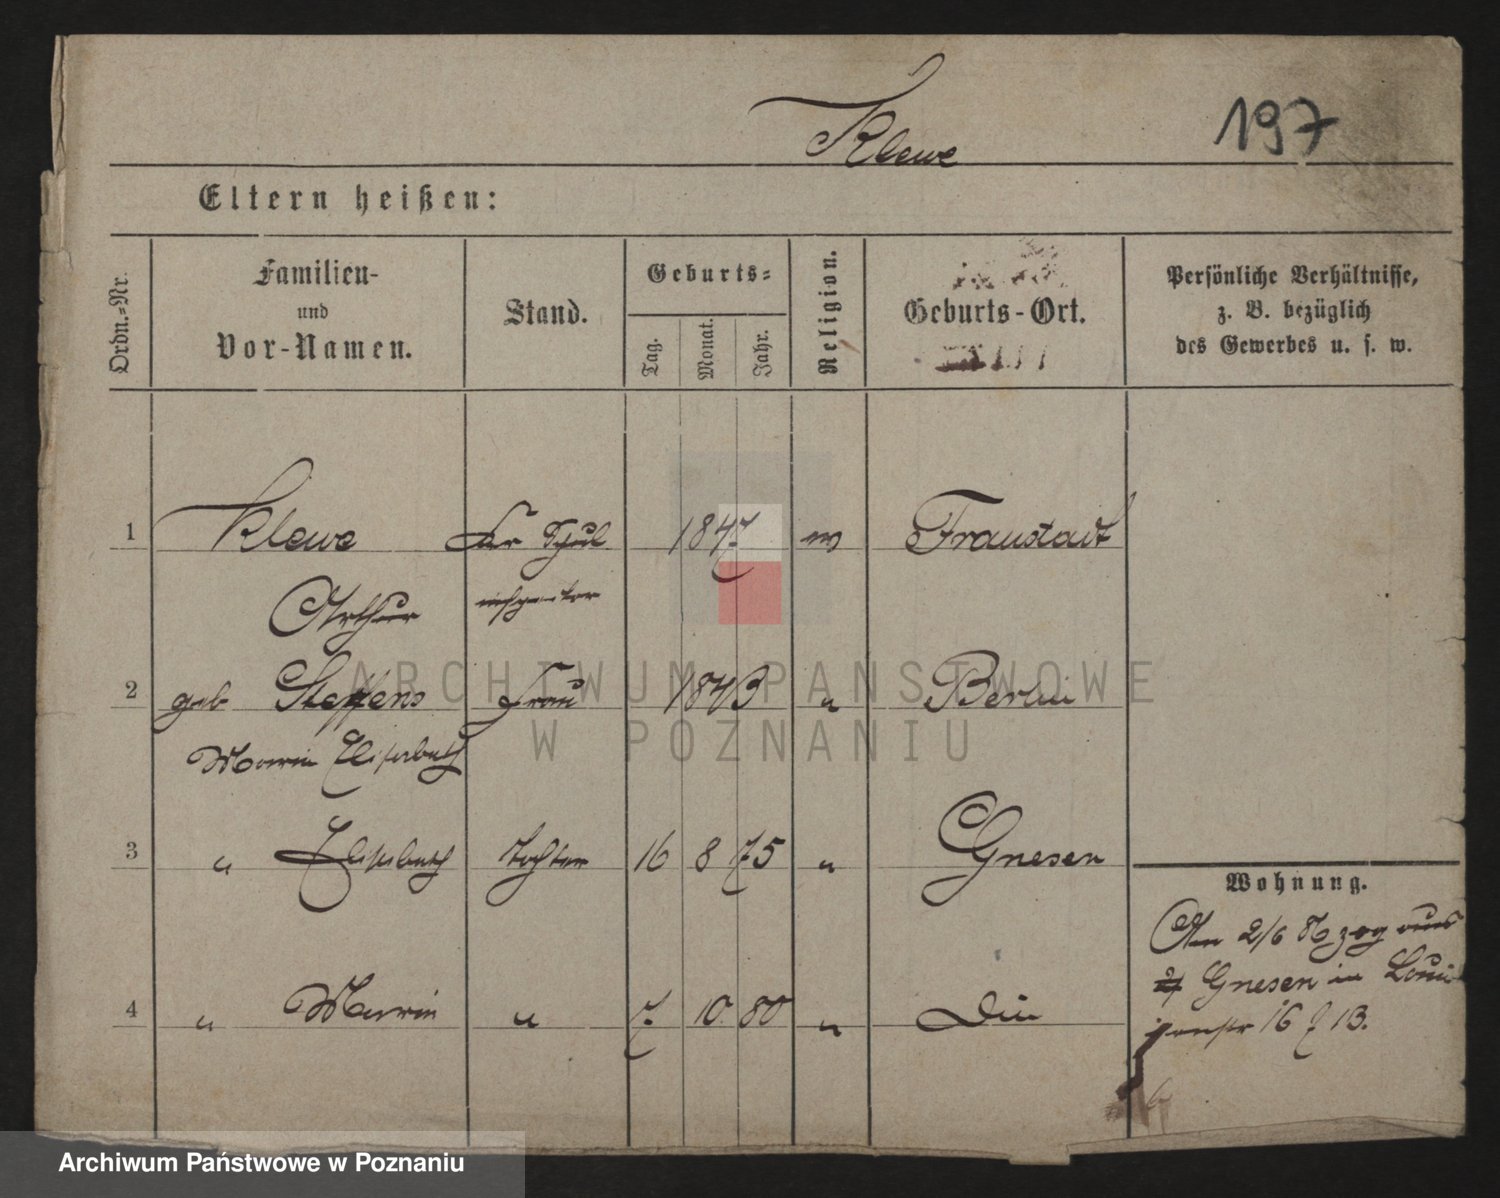 Klewe
197
Eltern heißen:
Ordn.-Nr.
Familien-
und
Vor-Namen.
Stand.
Geburts-
Tag.
Monat.
Jahr.
Religion.
Geburts-Ort.
Persönliche Verhältnisse,
z. B. bezüglich
des Gewerbes u. s. w.
1 Klewe Kr Schul 1847 ev Fraustadt
Arthur inspector
2 geb Steffens Frau 1843 " Berlin
Marie Elisabeth
3 " Elisabeth Tochter 16 8 75 " Gnesen
Wohnung.
Am 2/6 zog aus
Gnesen in Loui
senstr 16 13.
4 " Marie " 7. 10 80 "
ARCHIWUM PAŃSTWOWE
W POZNANIU
Archiwum Państwowe w Poznaniu